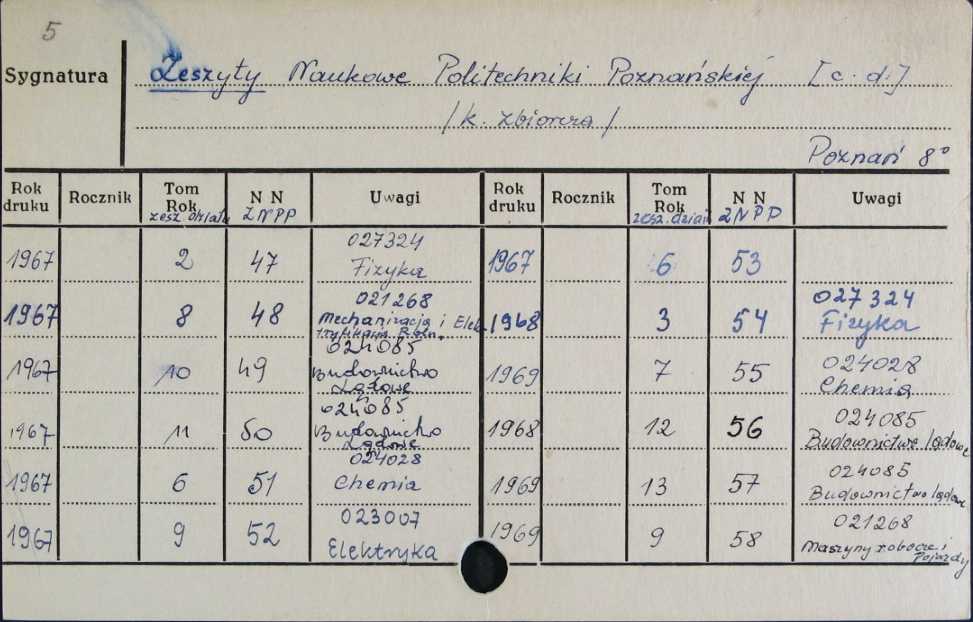 5
Sygnatura
Zeszyty Naukowe Politechniki Poznańskiej [c.d.]
/k. zbiorcza/
Poznań 8°
Rok druku Rocznik Tom Rok zesz. działu N N ZNPP Uwagi Rok druku Rocznik Tom Rok zesz. dział N N ZNPP Uwagi
1967 2 47 027324 Fizyka 1967 6 53
1967 8 48 021268 Mechanizacja i Elek. 1968 3 54 027324 Fizyka
1967 10 49 024085 Budownictwo Lądowe 1969 7 55 024028 Chemia
1967 11 50 024085 Budownictwo Lądowe 1968 12 56 024085 Budownictwo lądowe
1967 6 51 024028 Chemia 1969 13 57 024085 Budownictwo lądowe
1967 9 52 023007 Elektryka 1969 9 58 021268 Maszyny robocze i Pojazdy